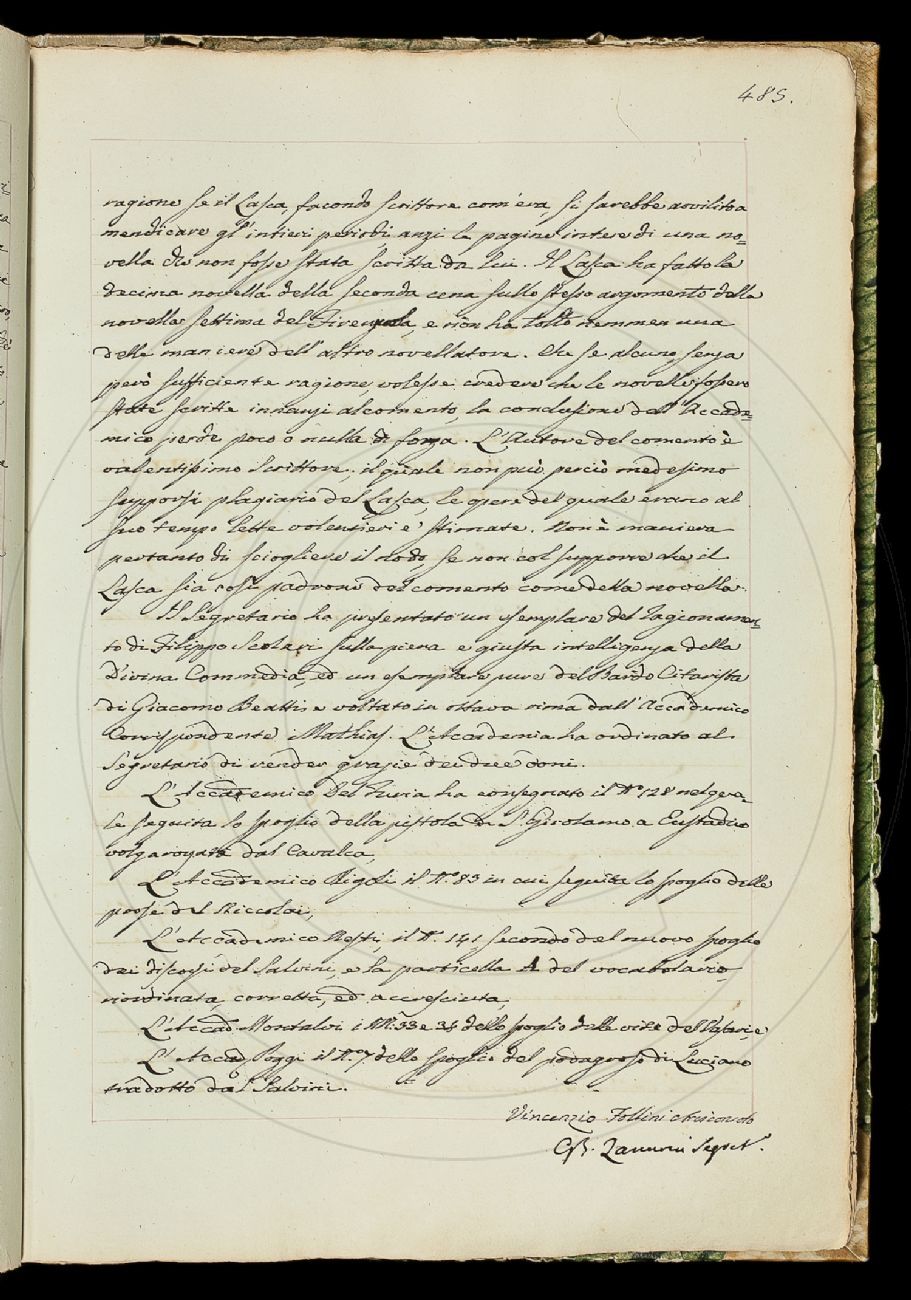 485.
ragione se il Lasca, facondo scrittore com'era, si sarebbe avvilito a
mendicare gl'intieri periodi, anzi le pagine intere di una no=
vella che non fosse stata scritta da lui. Il Lasca ha fatto la
decima novella della seconda cena sullo stesso argomento della
novella settima del Firenzuola, e non ha tolto nemmen una
delle maniere dell'altro novellatore. Che se alcuno senza
però sufficiente ragione, volesse credere che le novelle fossero
state scritte innanzi al comento, la conclusione dell'Accade=
mico perde poco o nulla di forza. L'Autore del comento è
valentissimo scrittore, il quale non può perciò medesimo
supporsi plagiario del Lasca, le opere del quale erano al
suo tempo lette volentieri e stimate. Non è maniera
pertanto di sciogliere il nodo, se non col supporre che il
Lasca sia così padrone del comento come della novella.
Il Segretario ha presentato un esemplare del Ragionamen=
to di Filippo Scolari sulla piena e giusta intelligenza della
Divina Commedia, ed un esemplare pure del Bardo Citarista
di Giacomo Beattie voltato in ottava rima dall'Accademico
Corrispondente Mathias. L'Accademia ha ordinato al
Segretario di render grazie dei due doni.
L'Accademico Del Furia ha consegnato il N.o 128 nel qua=
le seguita lo spoglio della pistola di S. Girolamo a Eustachio
volgarizzata dal Cavalca,
L'Accademico Rigoli il N.o 83 in cui seguita lo spoglio delle
prose del Niccolai,
L'Accademico Nesti il N. 141 secondo del nuovo spoglio
dei discorsi del Salvini, e la particella A del vocabolario
riordinata, corretta, ed accresciuta,
L'Accad. Montalvi i NN. 33 e 34 dello spoglio delle vite del Vasari, e
L'Accad. Poggi il N.o 7 dello spoglio del podagroso di Luciano
tradotto dal Salvini.
Vincenzio Follini Arciconsolo
GB. Zannoni Segret.